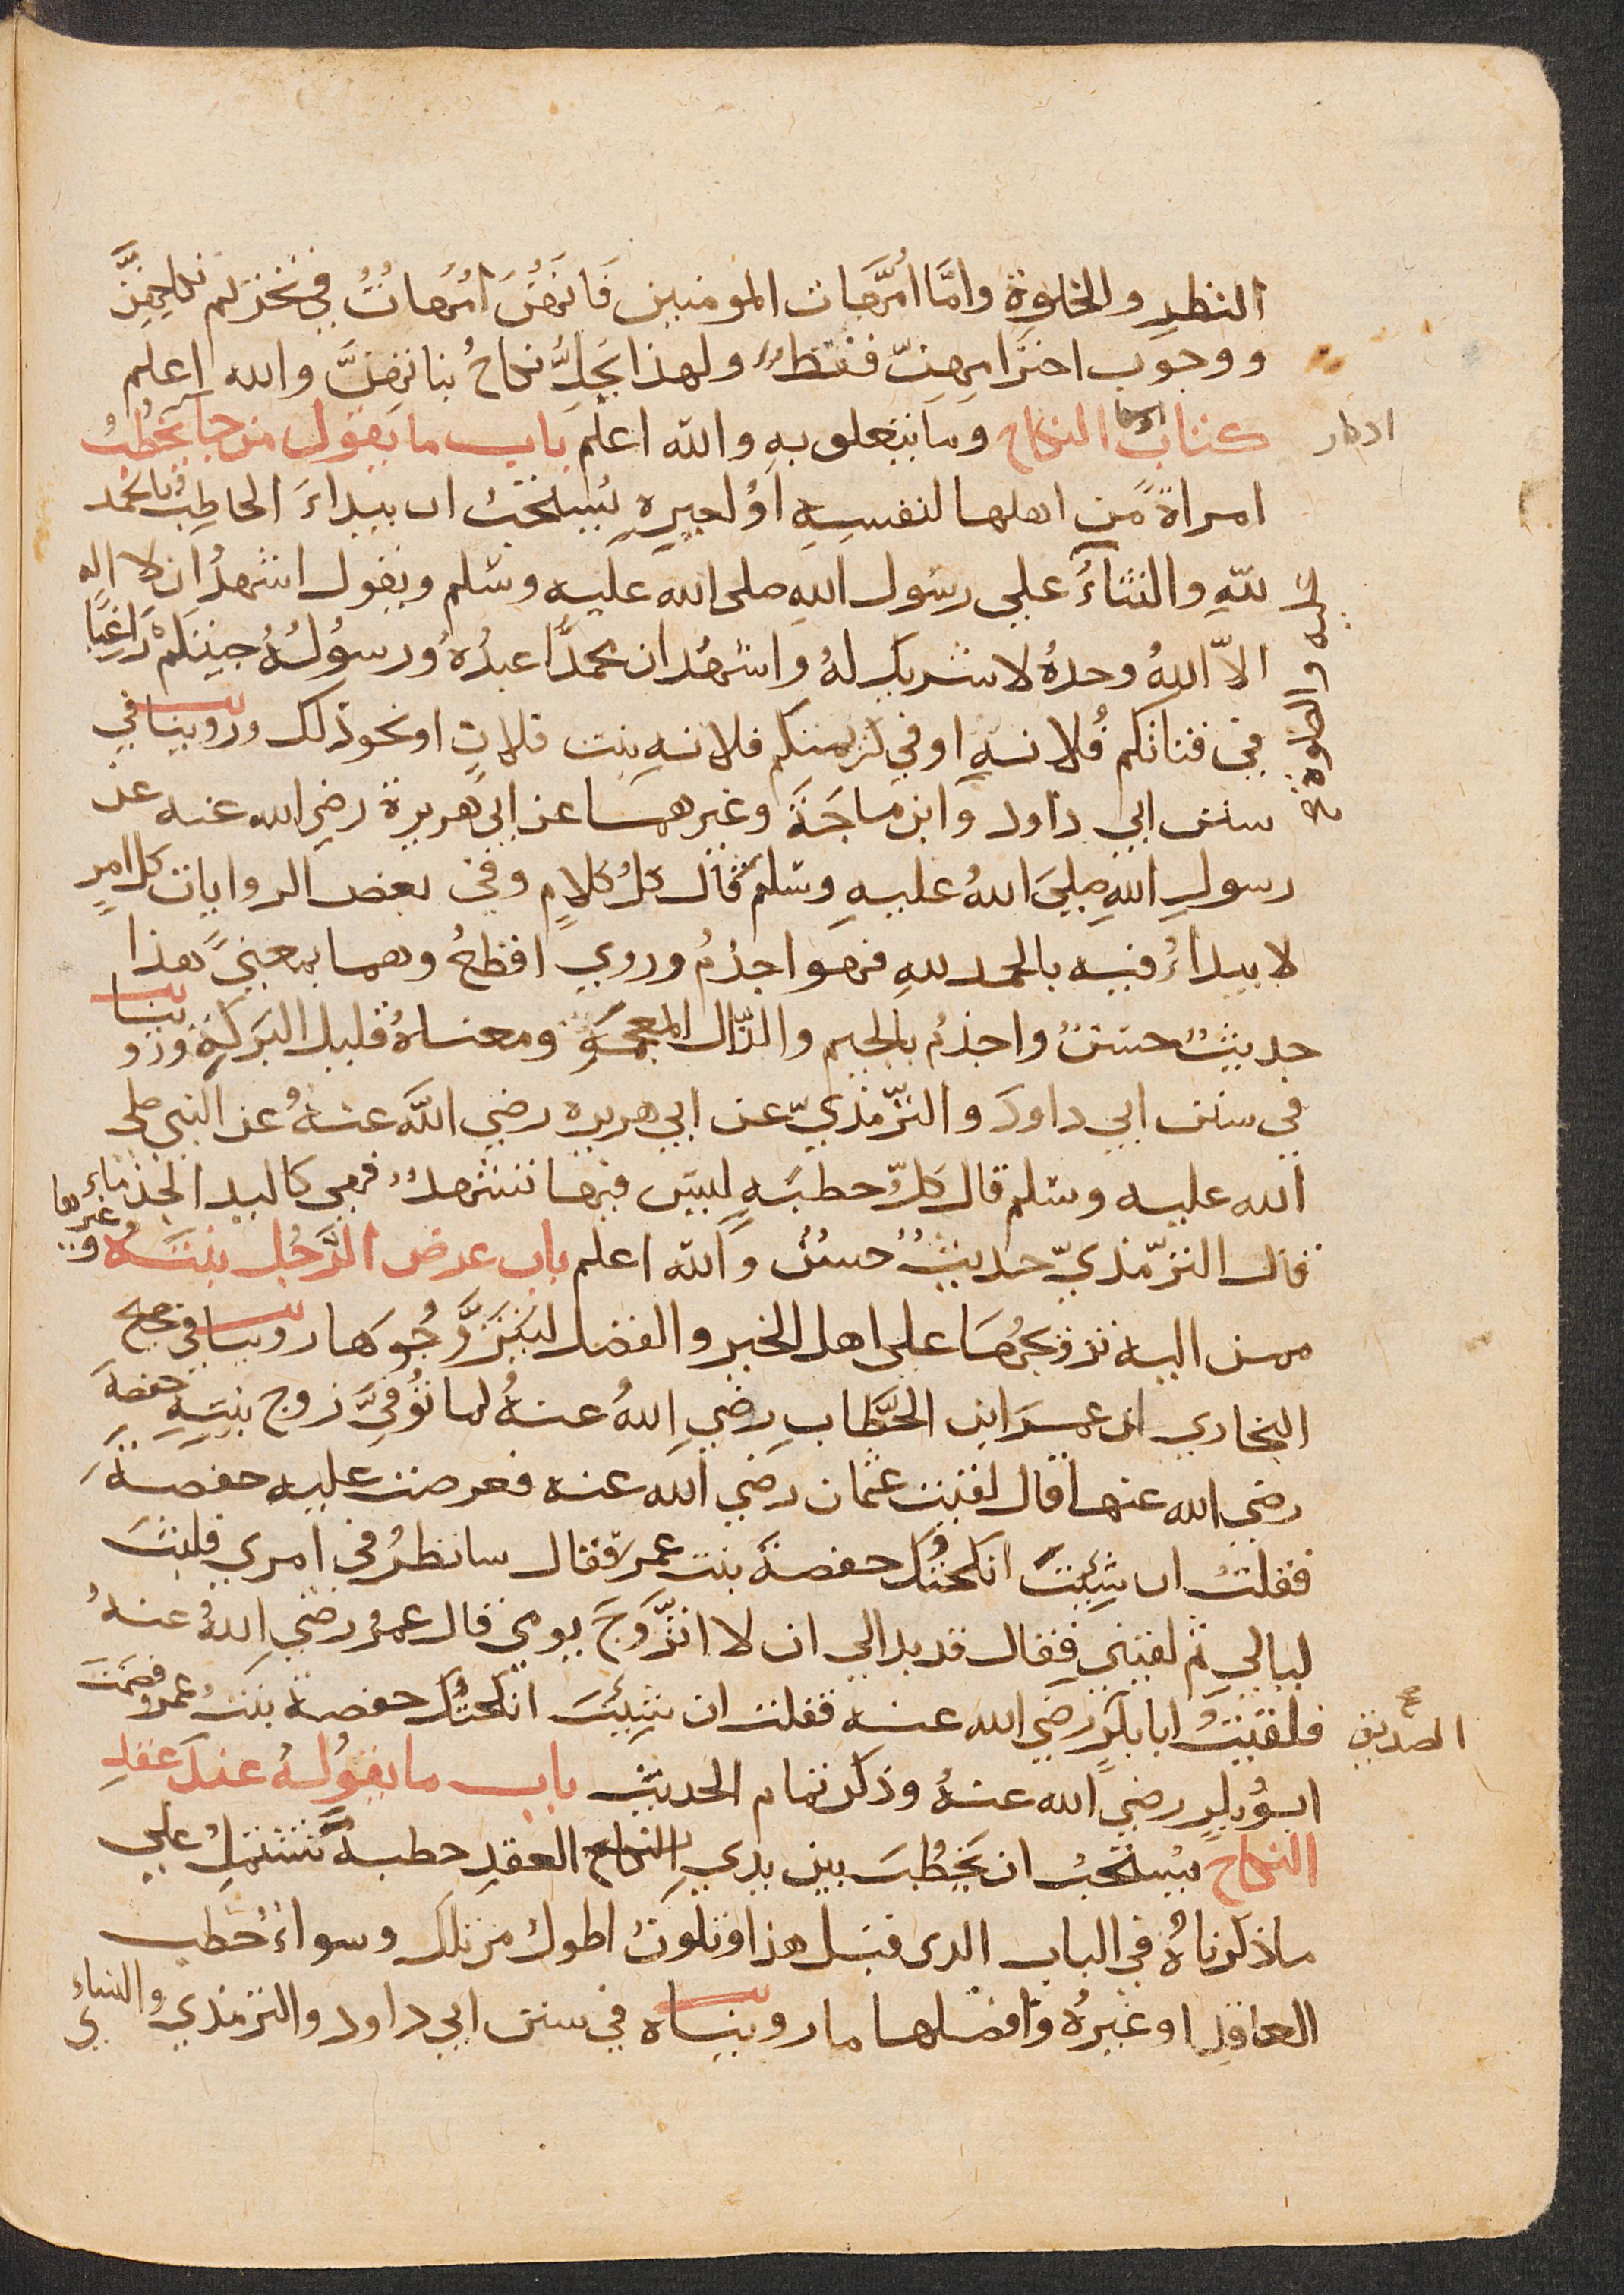 النظر والخلوة وامَّا امَّهات المومنين فَانهُنَ امُهاتٌ في تحريم نكاحِهِنَّ
ووجوب احترامِهِنّ فقط ولهذا يَحِلُّ نكاحُ بناتِهِنَّ والله اعلم
كتاب اذكار النكاح وما يتعلق بهِ والله اعلم باب ما يقول من جا يخطُبُ
اذكار
امراةً مِن اهلها لنفسِهِ او لغيرِهِ يُستحَبُ ان يبداءَ الخاطِبُ بالحمد
للهِ والثناءُ علي رسُول اللهِ صلى الله عليه وسَلم ويقول اشهدُ ان لا اله
عليه والصلوة
الاّ اللهُ وحدهُ لا شريك لهُ واشهدُ ان محمدًا عبدُهُ ورسُولُهُ جيتكُم رَاغِبًا
في فتاتكم فُلانة او في كريمتكم فلانه بنت فلانٍ او نحو ذلك وروينا في
سنن ابي داود وَابن ماجَةَ وغيرهما عن ابي هريرة رضي الله عنه عن
رسولِ اللهِ صليَ اللهُ عليهِ وسَلم قال كلُ كلامٍ وفي بعض الروايات كل امرٍ
لا يبداءُ فيه بالحمد للهِ فهو اجذمُ وروي اقطعُ وهما بمعنيً هذا
حديثٌ حسَنٌ واجذمُ بالجيم والذّال المعجمَةِ ومعناهُ قليل البَركةِ وروينا
في سنن ابي داودَ والترّمذيّ عن ابي هريره رضي اللّهَ عنهُ عن النبي صلى
الله عليه وسَلم قال كلُّ خطبَةٍ ليسَ فيها تشهدٌ فهي كاليد الجذماءِ
قال الترّمذيّ حديثٌ حسَنٌ وَالله اعلم باب عرض الرَّجُل بنتَهُ وغيرها
ممن اليه تزويجُهَا على اهل الخير والفضل ليَتزَوَّجُوهَا روينا في صحيح
البخاري ان عمر ابن الخَطَّابِ رضي اللهُ عنهُ لما تُوُفِّيَ زوج بنتِهِ حفصةَ
رضي الله عنها قال لقيت عثمان رضي الله عنه فعرضت عليه حفصةَ
فقلتُ ان شِئتَ انكحتُك حفصة بنت عمر فقال سانظرُ في امري فلبثَ
ليالي ثم لقيني فقال قد بدا لي ان لا اتزّوَجَ يومي قال عمر رضي اللهُ عنهُ
فلقيتُ ابا بكرٍ رضي الله عنه فقلت ان شِئتَ انكحتُك حفصة بنتُ عمر فصمَتَ
الصديق صح
ابُو بكرٍ رضي الله عنهُ وذكر تمام الحديث باب ما يقُولهُ عند عقدِ
النكاح يُستحَبُ ان يَخطُبَ بين يدي النكاح العقدِ خطبةً تَشتَمِلُ علي
ما ذكرناهُ في الباب الدى قبل هذا وتكونُ اطول من تلك وسواءُ خطب
العاقد او غيرهُ وَافضلها ما رويناه في سنن ابي داود والترمذي والنساءي